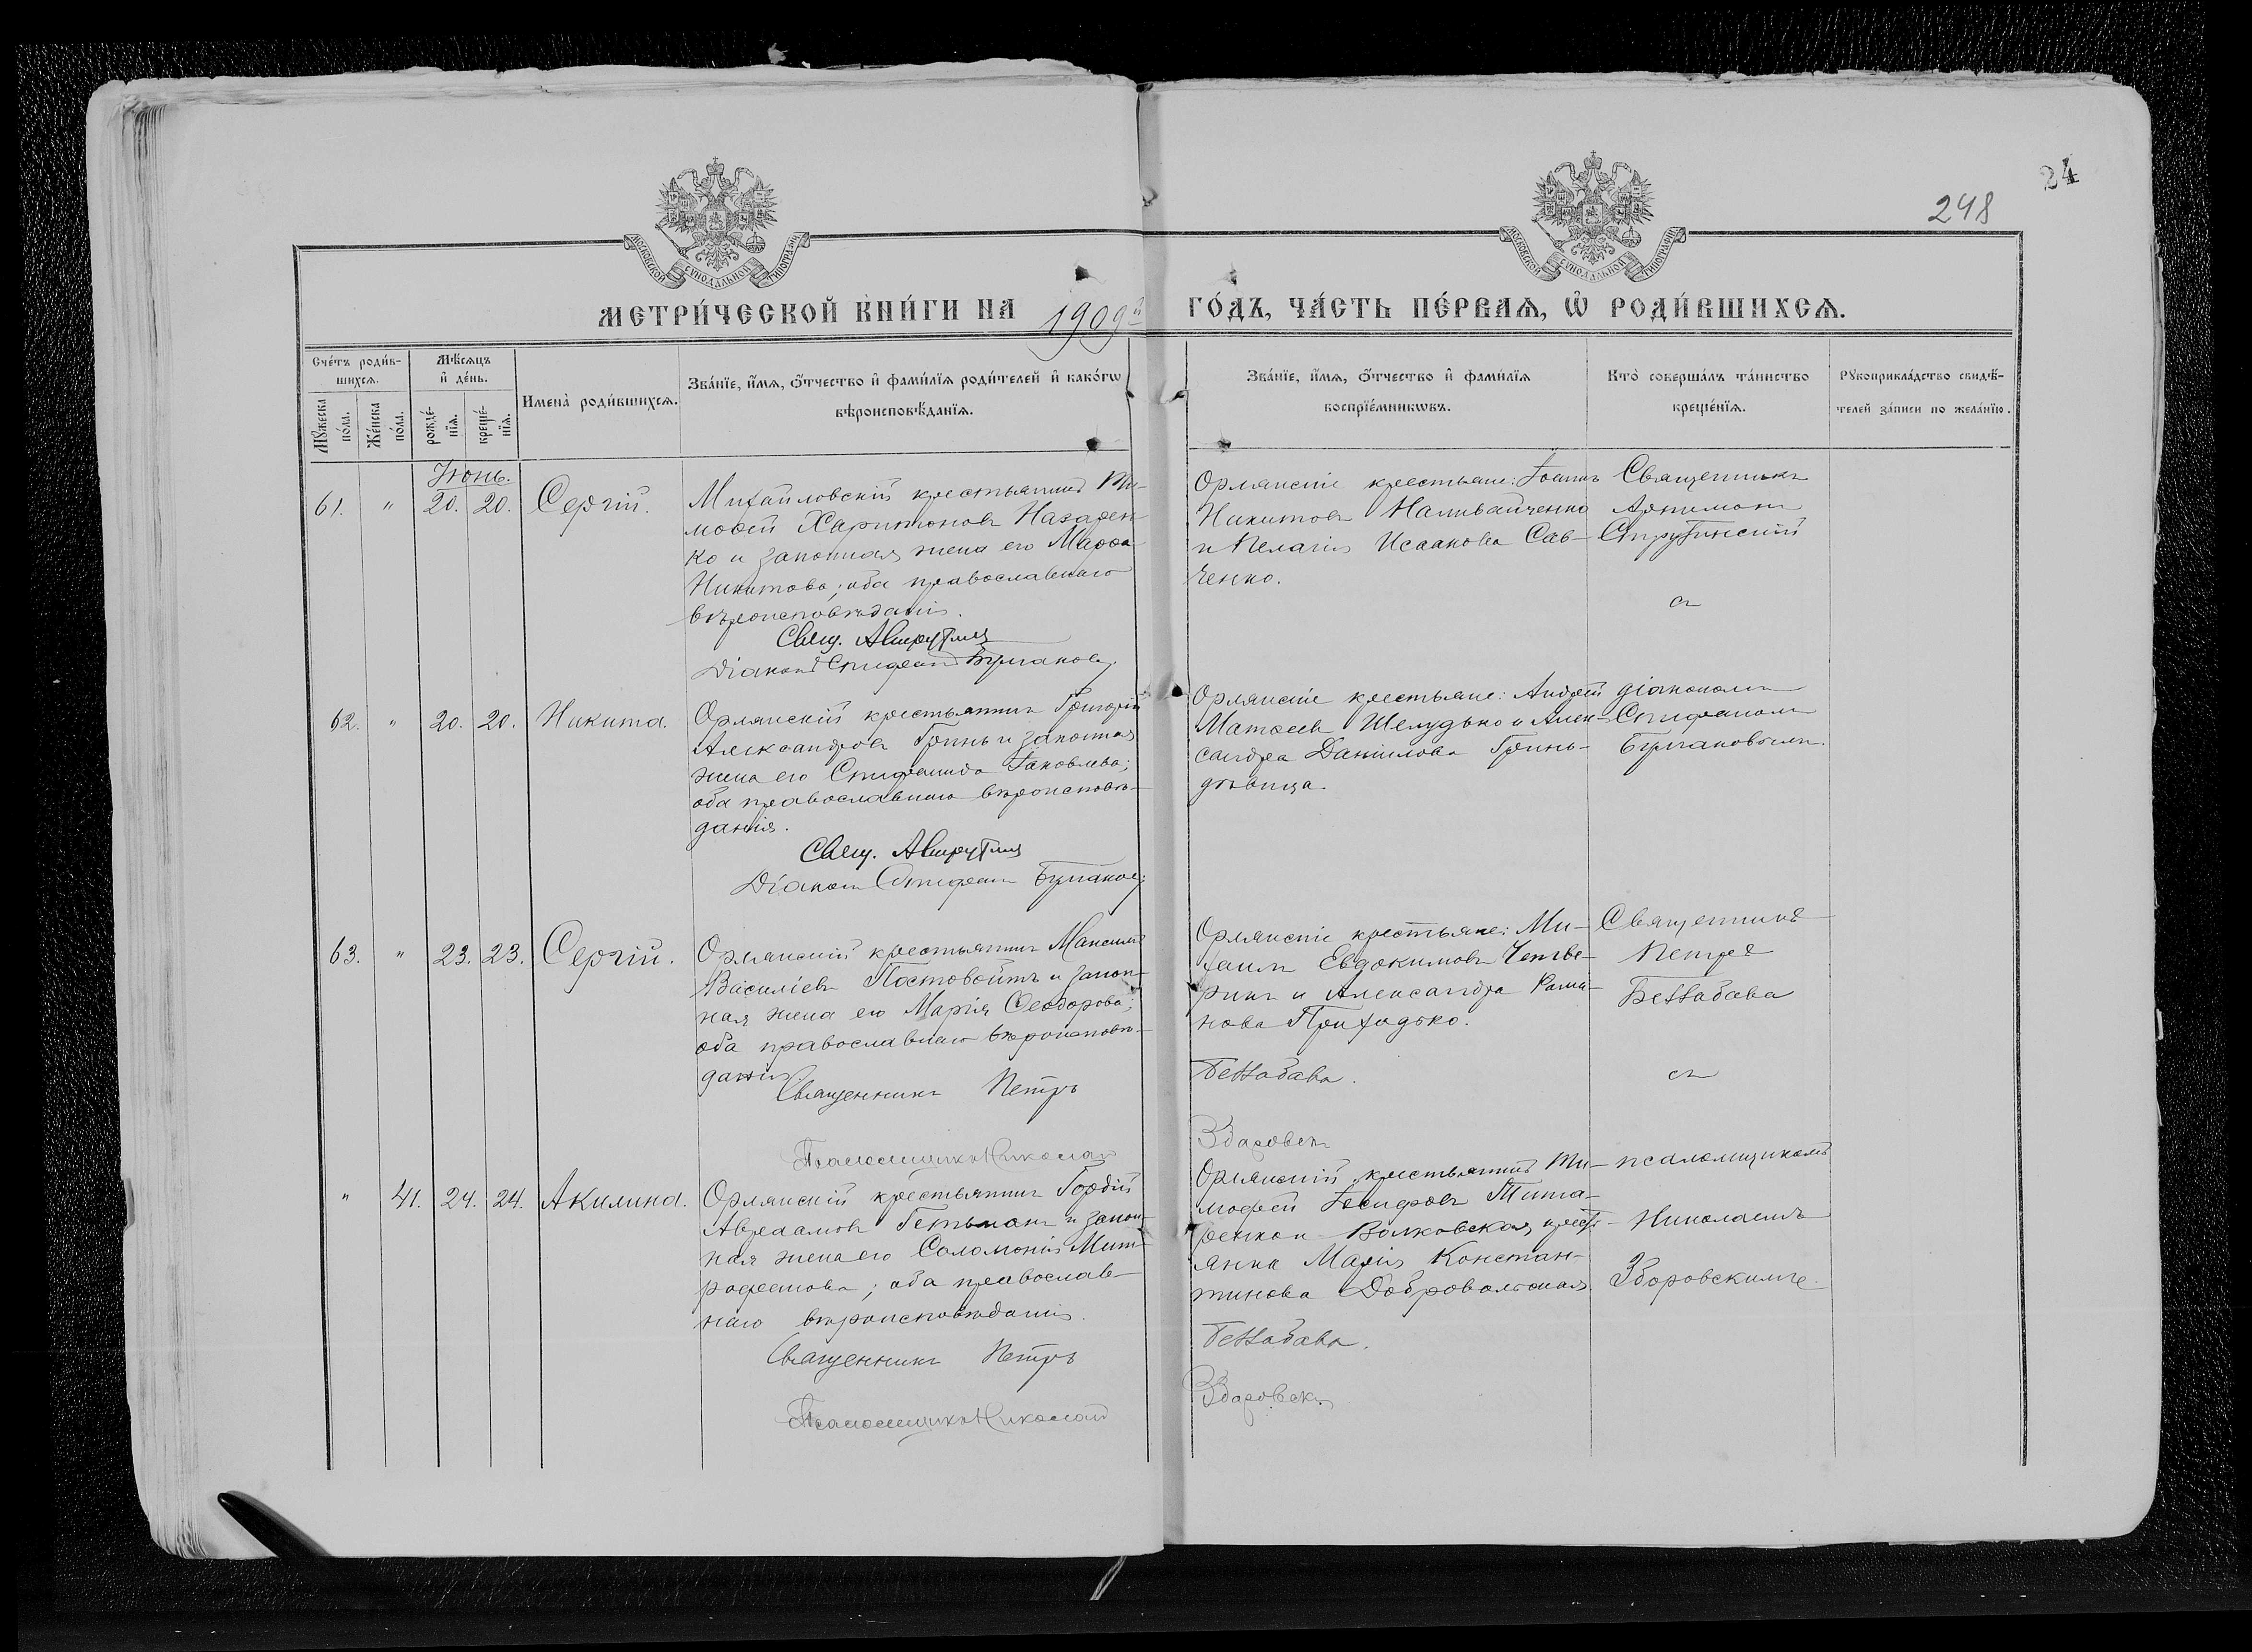 24
248
МОСКОВСКОЙ СѴНОДАЛЬНОЙ ТИПОГРАФІИ
МОСКОВСКОЙ СѴНОДАЛЬНОЙ ТИПОГРАФІИ
МЕТРИ́ЧЕСКОЙ КНИ́ГИ НА 1909й ГО́ДЪ, ЧА́СТЬ ПЕ́РВАѦ, Ѡ҆ РОДИ́ВШИХСѦ.
Сче́тъ роди́в-
шихсѧ.
Мѣ́сѧцъ
и҆ де́нь.
Мꙋ́жеска
по́ла.
Же́нска
по́ла.
рожде́-
нїѧ.
креще́-
нїѧ.
Имена̀ роди́вшихсѧ.
Зва́нїе, и҆́мѧ, ѻ҆́тчество и҆ фами́лїѧ роди́телей и҆ како́гѡ
вѣроисповѣ́данїѧ.
Зва́нїе, и҆́мѧ, ѻ҆́тчество и҆ фами́лїѧ
воспрїе́мникѡвъ.
Кто̀ соверша́лъ та́инство
креще́нїѧ.
Рꙋкоприкла́дство свидѣ́-
телей за́писи по жела́нїю.
Іюнь.
61. " 20. 20. Сергій.
Михайловскій крестьянинъ Ти-
моѳей Харитоновъ Назарен-
ко и законная жена его Марѳа
Никитова; оба православнаго
вѣроисповѣданія.
Свящ. А Струтинс
Діаконъ Стефанъ Булаковъ.
Орлянскіе крестьяне: Іоаннъ
Никитовъ Наливайченко
и Пелагія Исаакова Сав-
ченко.
Священникъ
Артимонъ
Струтинскій
съ
62. " 20. 20. Никита.
Орлянскій крестьянинъ Григорій
Александровъ Гринь и законная
жена его Стефанида Іаковлева;
оба православнаго вѣроисповѣ-
данія.
Свящ. А Струтинс
Діаконъ Стефанъ Булаковъ
Орлянскіе крестьяне: Андрей
Матѳеевъ Шелудько и Алек-
сандра Даніилова Гринь-
дѣвица.
діакономъ
Стефаномъ
Булаковымъ.
63. " 23. 23. Сергій.
Орлянскій крестьянинъ Максимъ
Василіевъ Постовойтъ и закон-
ная жена его Марія Ѳеодорова;
оба православнаго вѣроисповѣ-
данія
Священникъ Петръ Беззабава.
Псаломщикъ Николай Зборовск
Орлянскіе крестьяне: Ми-
хаилъ Евдокимовъ Четве-
рикъ и Александра Рома-
нова Приходько.
Священникъ
Петръ
Беззабава
съ
" 41. 24. 24. Акилина.
Орлянскій крестьянинъ Гордій
Авраамовъ Гетьманъ и закон-
ная жена его Соломонія Мит-
рофанова; оба православ-
наго вѣроисповѣданія.
Священникъ Петръ Беззабава.
Псаломщикъ Николай Зборовск
Орлянскій крестьянинъ Ти-
мофей Іосифовъ Тита-
ренко и Волковская крест-
янка Марія Констан-
тинова Добровольская.
псаломщикомъ
Николаемъ
Зборовскимъ.